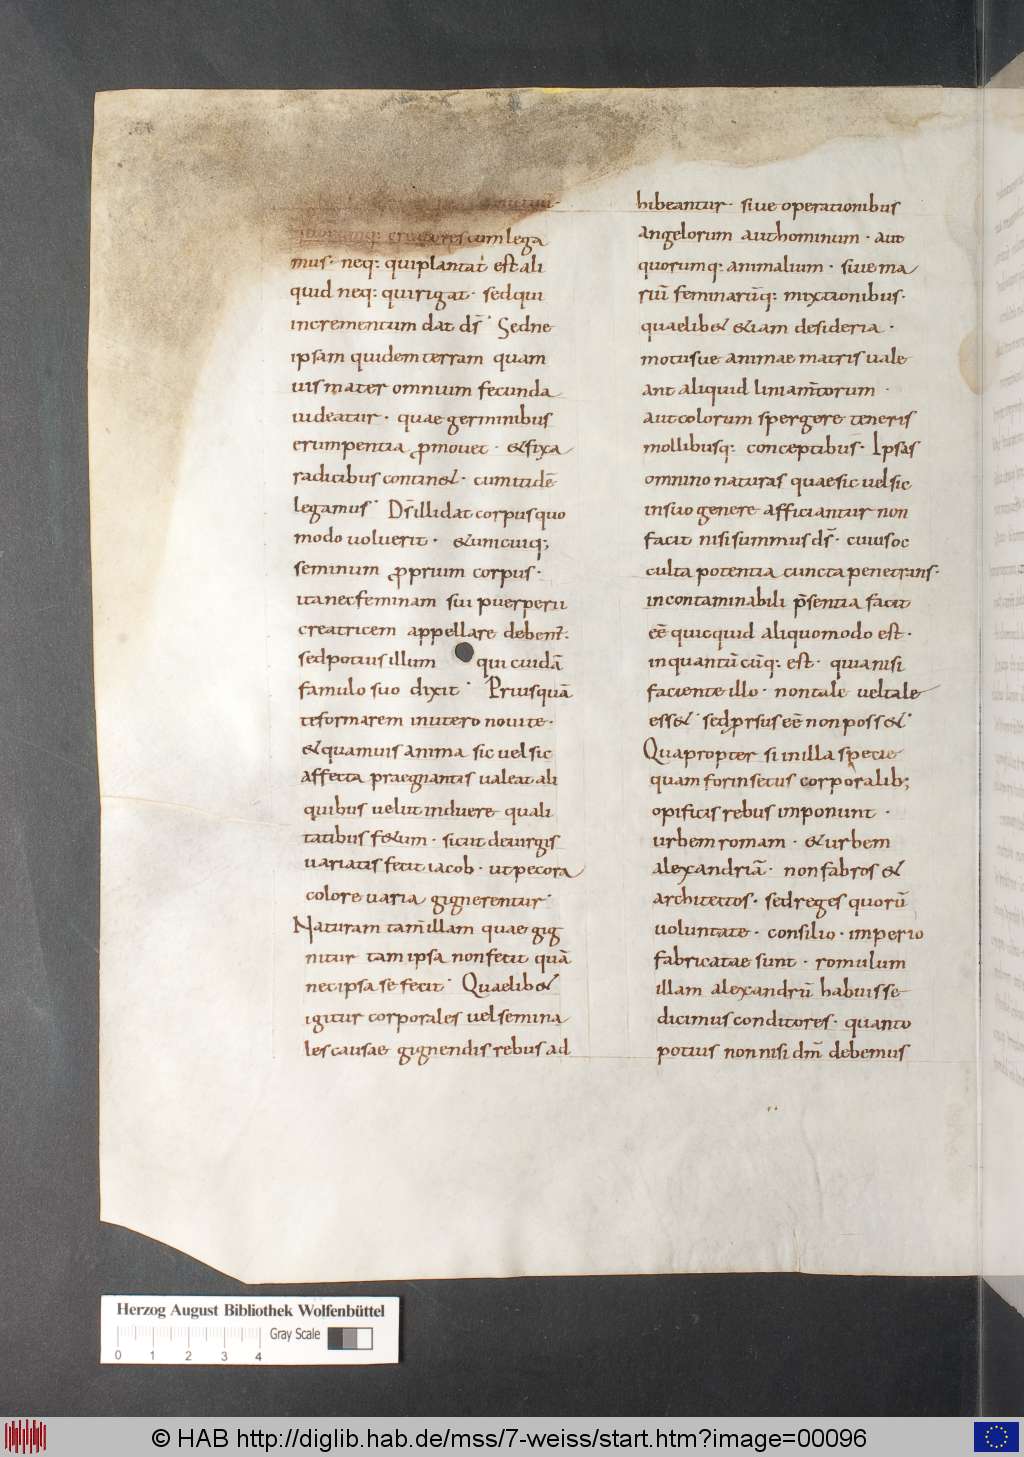 creatores cum lega
mus· neq: qui plantat est ali
quid neq: qui rigat· sed qui
incrementum dat ds̄· Sed ne
ipsam quidem terram quam
uis mater omnium fecunda
uideatur· quae germinibus
erumpentia ꝓmouet· &fixa
radicibus contin&· cum itidē
legamus· Ds̄ illi dat corpus quo
modo uoluerit· &unicuiq;
seminum ꝓprium corpus·
ita nec feminam sui puerperii
creatricem appellare debem:
sed potius illum qui cuidā
famulo suo dixit· Priusquā
te formarem in utero noui te·
&quamuis anima sic uel sic
affecta praegnantis ualeat ali
quibus uelut induere quali
tatibus f&um· sicut de uirgis
uariatis fecit iacob· ut pecora
colore uaria gignerentur·
Naturam tam̄ illam quae gig
nitur tam ipsa non fecit quā
nec ipsa se fecit· Quaelib&
igitur corporales uel semina
les causae gignendis rebus ad
hibeantur· siue operationibus
angelorum aut hominum· aut
quorumq: animalium· siue ma
riū feminarūq: mixtionibus·
quaelib& &iam desideria·
motusue animae matris uale
ant aliquid liniam̄torum·
aut colorum spergere teneris
mollibusq: conceptibus· Ipsas
omnino naturas quae sic uel sic
in suo genere afficiantur non
facit nisi summus ds̄· cuius oc
culta potentia cuncta penetrans·
incontaminabili p̄sentia facit
eē quicquid aliquomodo est·
in quantū cūq: est· quia nisi
faciente illo· non tale uel tale
ess&· sed prsus eē non poss&·
Quapropter si in illa specie
quam forinsecus corporalib;
opificis rebus imponunt·
urbem romam· &urbem
alexandriā· non fabros &
architectos· sed reges quorū
uoluntate· consilio· imperio
fabricatae sunt· romulum
illam alexandrū habuisse
dicimus conditores· quanto
potius non nisi dm̄ debemus
Herzog August Bibliothek Wolfenbüttel
Gray Scale
0 1 2 3 4
© HAB http://diglib.hab.de/mss/7-weiss/start.htm?image=00096